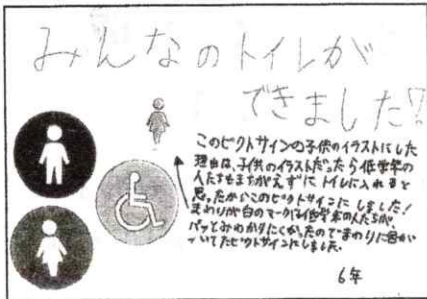 みんなのトイレが
できました!!
このピクトサインの子供のイラストにした
理由は、子供のイラストだったら低学年の
人たちもまちがえずにトイレに入れると
思ったからこのピクトサインにしました!
まわりが白のマークは低学年の人たちが、
パッとみわかりにくかったのでまわりに色が
ついてたピクトサインにしました。
6年